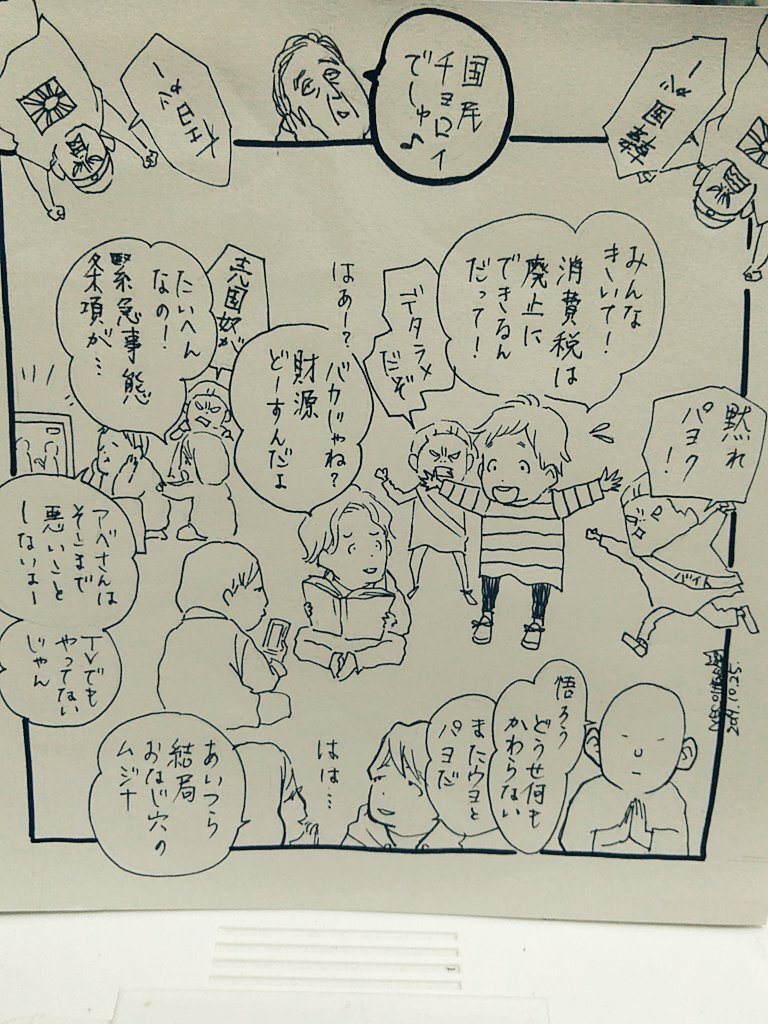 国民
チョロイ
でしゅ♪
韓国
みんな
きいて!
消費税は
廃止に
できるん
だって!
デタラメ
だぞ
黙れ
パヨク!
バイト
はあー?
バカじゃね?
財源
どーすんだよ
売国奴が
たいへん
なの!
緊急事態
条項が…
アベさんは
そこまで
悪いこと
しないよー
TVでも
やってない
じゃん
悟ろう
どうせ何も
かわらない
またウヨと
パヨだ
はは…
あいつら
結局
おなじ穴の
ムジナ